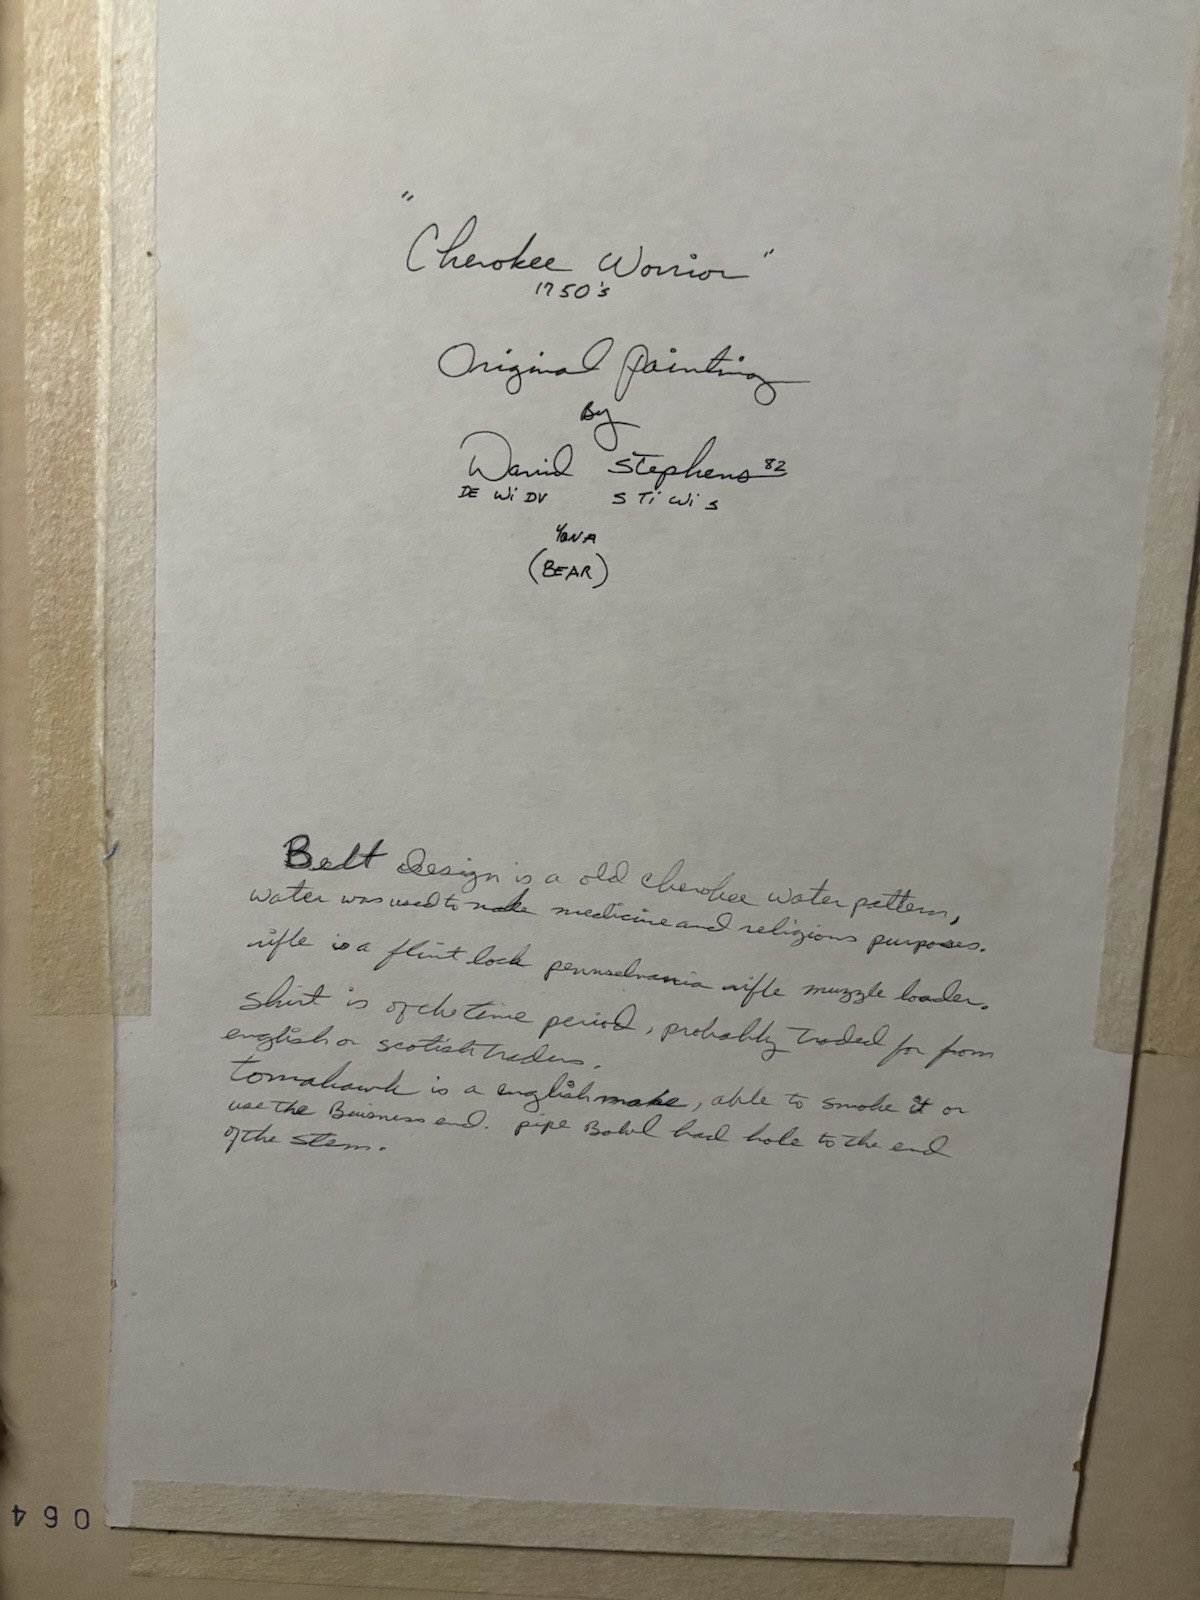 "Cherokee Worrior"
1750's
Original Painting
By
David Stephens 82
DE Wi DV S Ti Wi S
YONA
(BEAR)
Belt design is a old cherokee water pattern,
water was used to make medicine and religious purposes.
rifle is a flint lock pennselvania rifle muzzle loader.
Shirt is of the time period, probably traded for from
english or scotish traders.
tomahawk is a english make, able to smoke it or
use the Buisness end. pipe Bowl had hole to the end
of the stem.
064